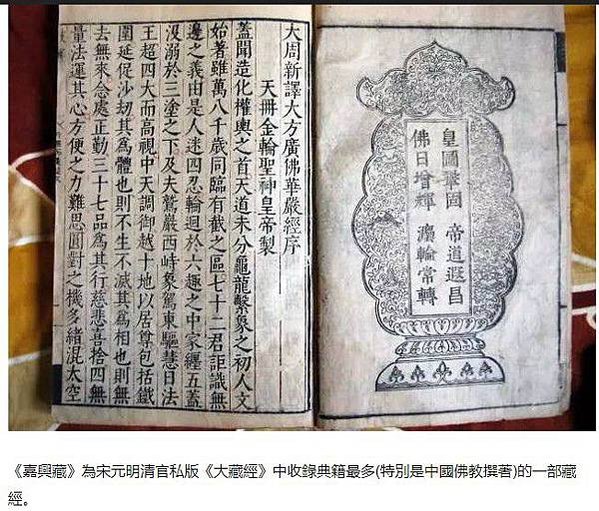 皇圖鞏固 帝道遐昌
佛日增輝 灋輪常轉
大周新譯大方廣佛華嚴經序
天冊金輪聖神皇帝製
蓋聞造化權輿之首天道未分龜龍繫象之初人文
始著雖萬八千歲同臨有截之區七十二君詎識無
邊之義由是人迷四忍輪迴於六趣之中家纏五蓋
沒溺於三塗之下及夫鷲巖西峙象駕東驅慧日法
王超四大而高視中天調御越十地以居尊包括鐵
圍延促沙劫其為體也則不生不滅其為相也則無
去無來念處正勤三十七品為其行慈悲喜捨四無
量法運其心方便之力難思圓對之機多緒混太空
《嘉興藏》為宋元明清官私版《大藏經》中收錄典籍最多(特別是中國佛教撰著)的一部藏
經。